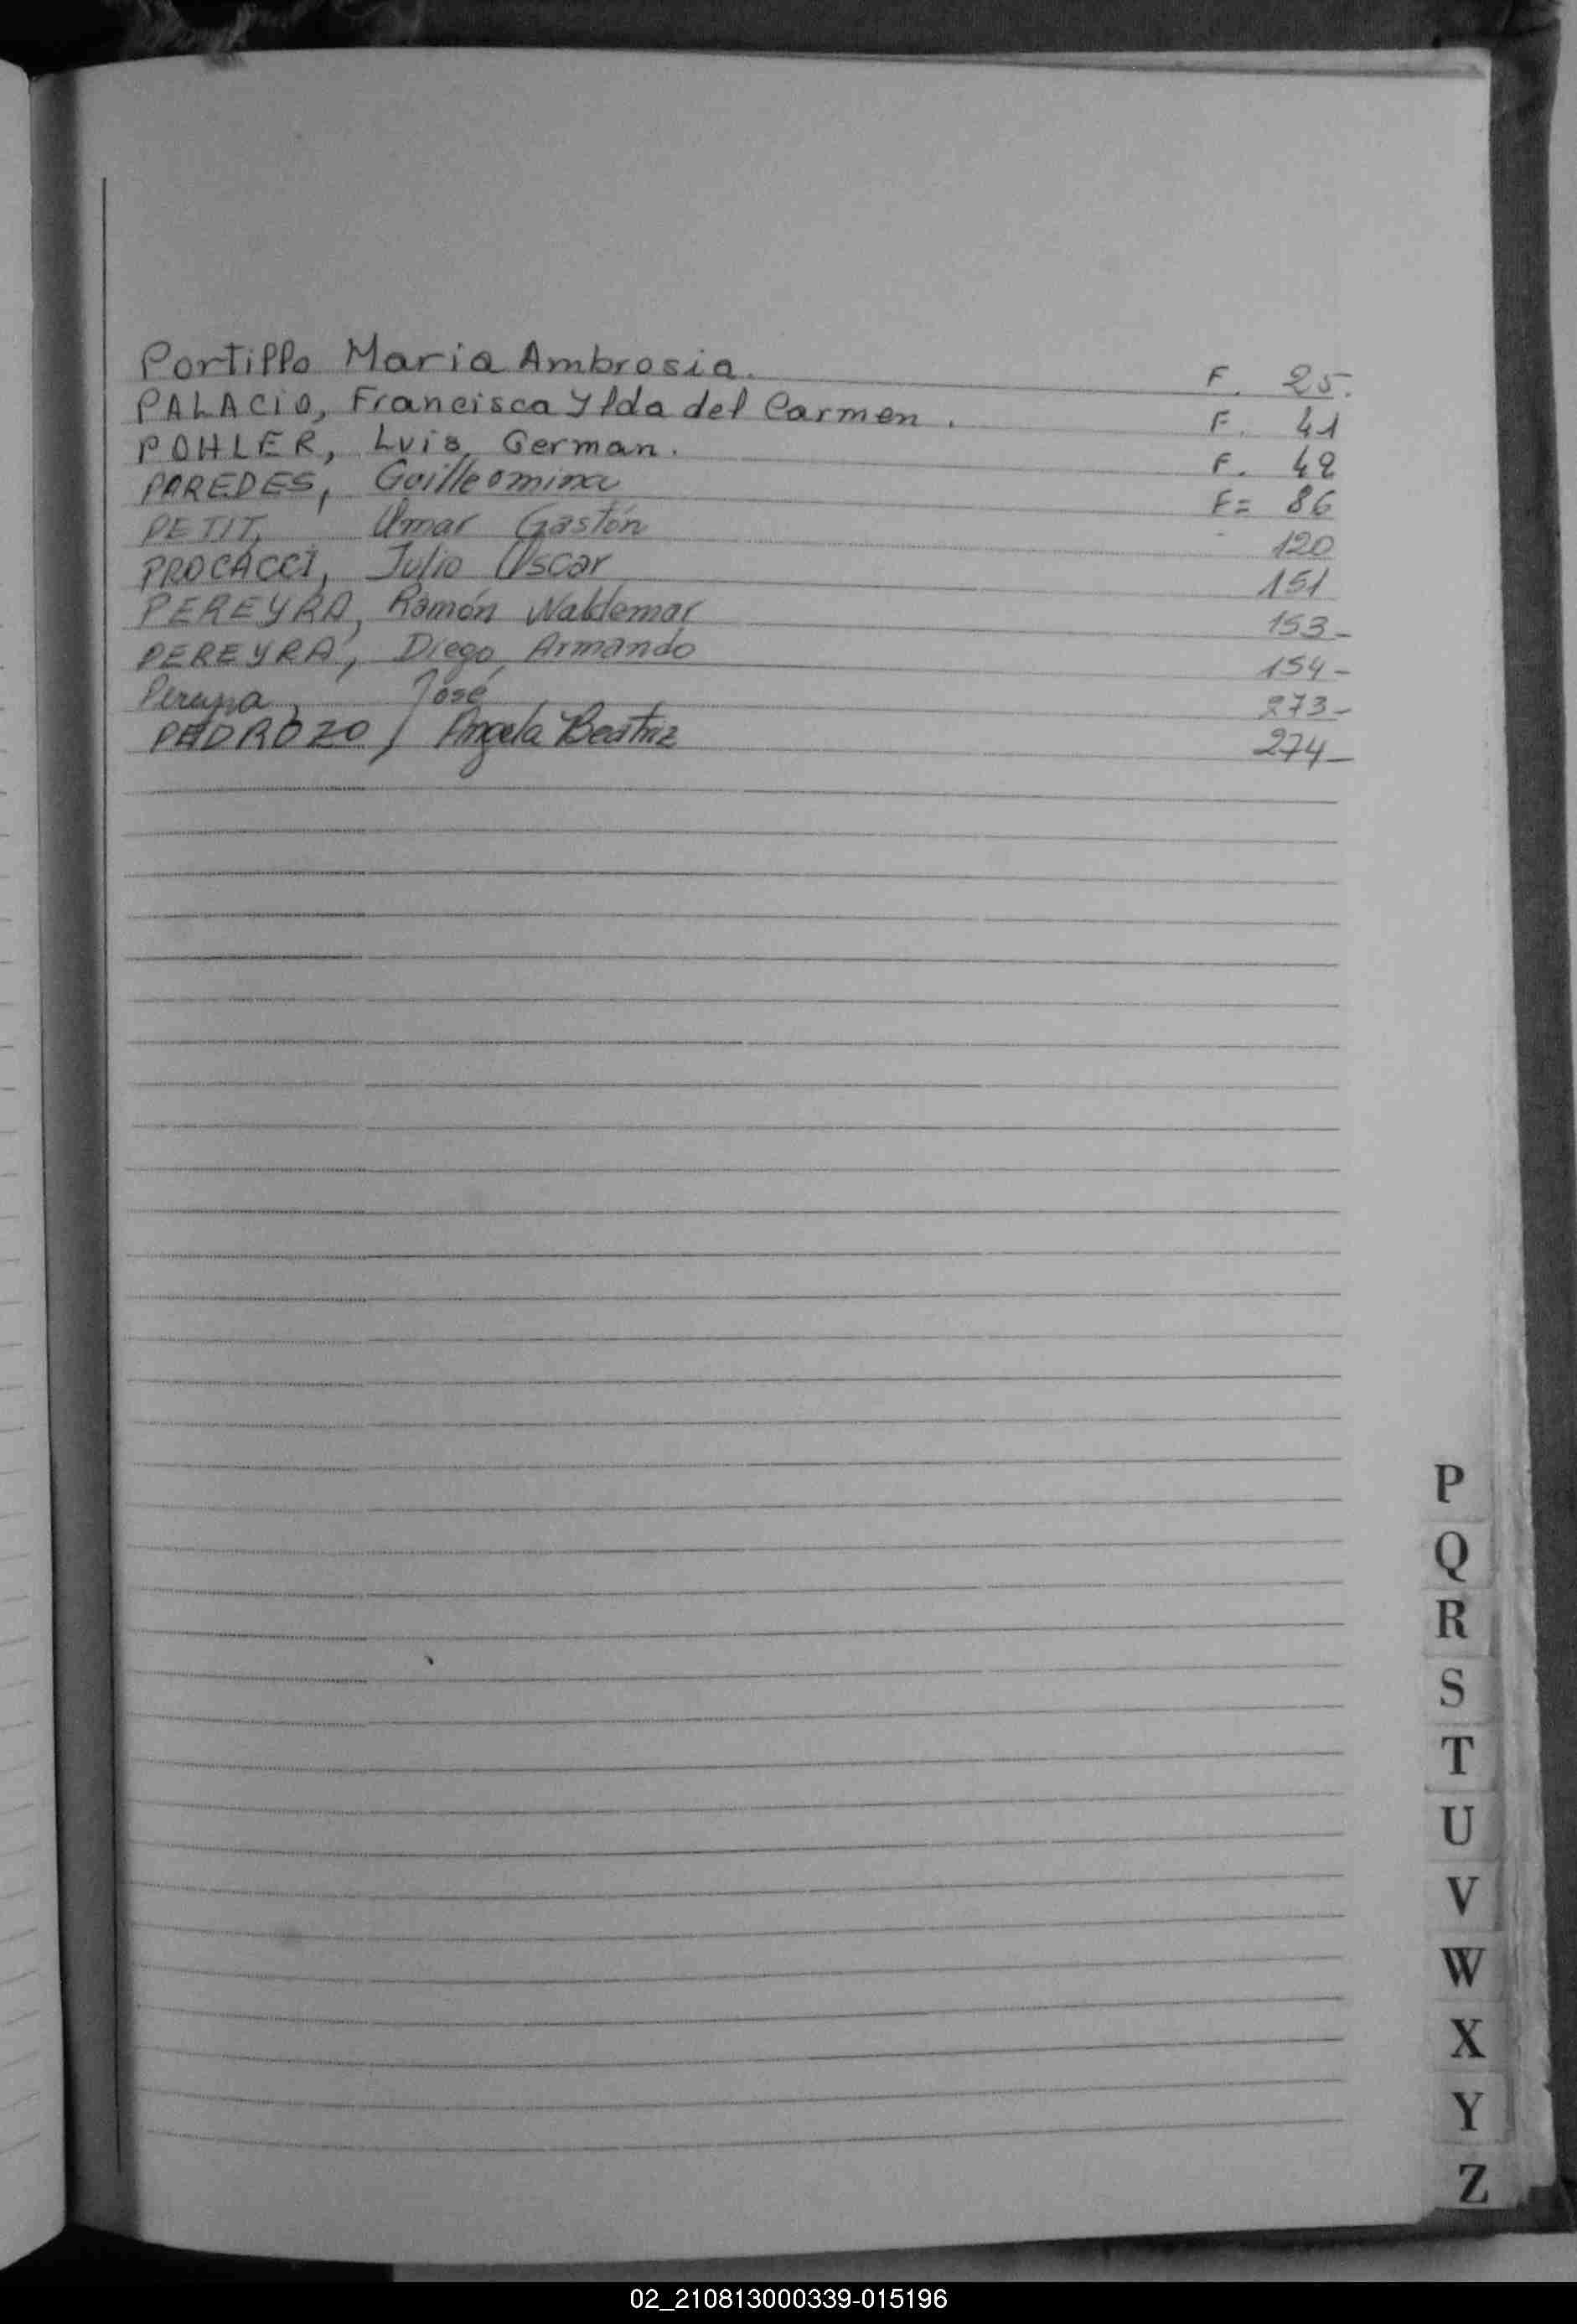 Portillo Maria Ambrosia. F. 25.
PALACIO, Francisca Ylda del Carmen. F. 41
POHLER, Luis German. F. 42
PAREDES, Guilleomina F= 86
PETIT, Omar Gastón 120
PROCACCI, Julio Oscar 151
PEREYRA, Ramón Waldemar 153-
PEREYRA, Diego Armando 154-
Pereyra, José 273-
PEDROZO, Angela Beatriz 274-
P
Q
R
S
T
U
V
W
X
Y
Z
02_210813000339-015196